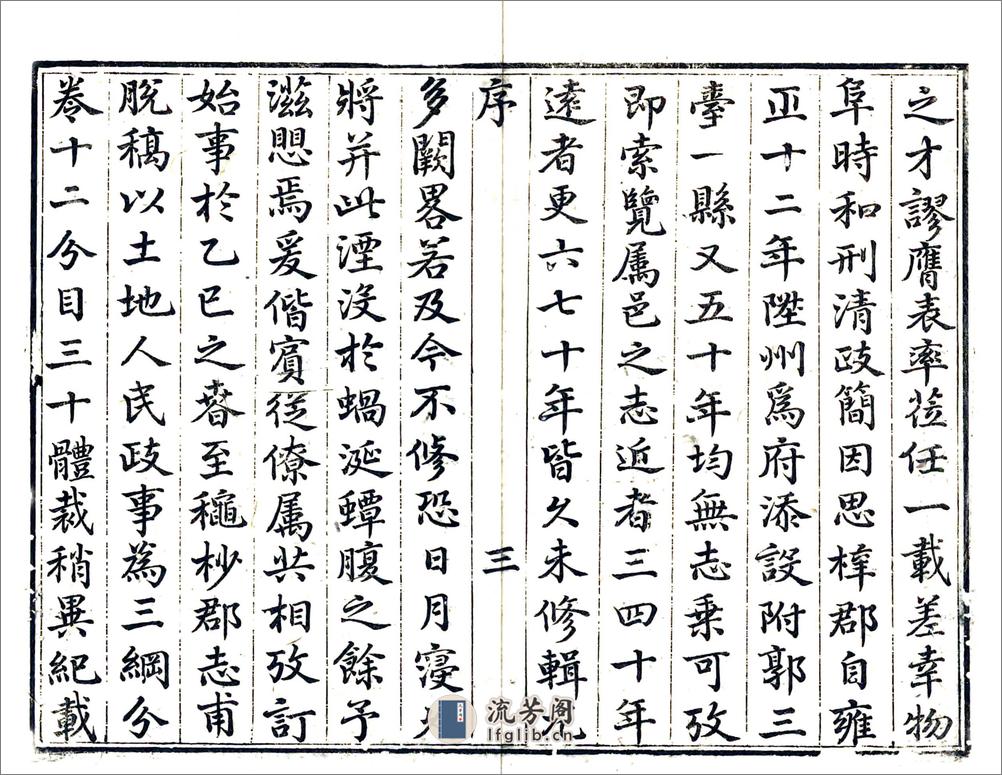 之才謬膺表率莅任一載差幸物
阜時和刑清政簡因思梓郡自雍
正十二年陞州為府添設附郭三
臺一縣又五十年均無志乗可攷
即索覽属邑之志近者三四十年
遠者更六七十年皆久未修輯
序 三
多闕畧若及今不修恐日月寖
將并此湮沒於蝸涎蟫腹之餘予
滋愳焉爰偕賓從僚属共相攷訂
始事於乙巳之春至龝杪郡志甫
脱稿以土地人民政事為三綱分
卷十二分目三十體裁稍異紀載
流芳阁
lfglib.cn